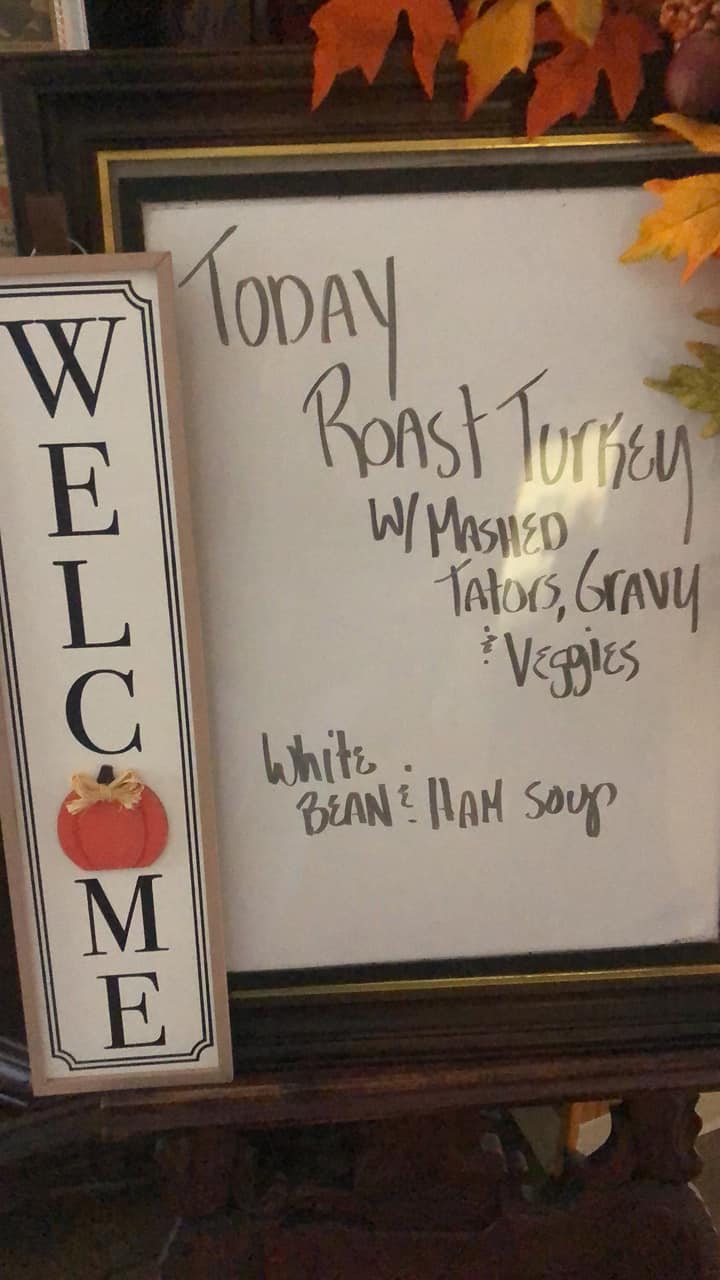 WELCOME
TODAY
ROAST TURKEY
W/ MASHED
TATORS, GRAVY
& VEGGIES
White
BEAN & HAM SOUP